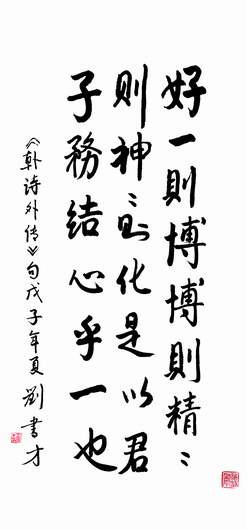 好一則博博則精〻
則神〻則化是以君
子務結心乎一也
《韩诗外传》句戊子年夏劉書才